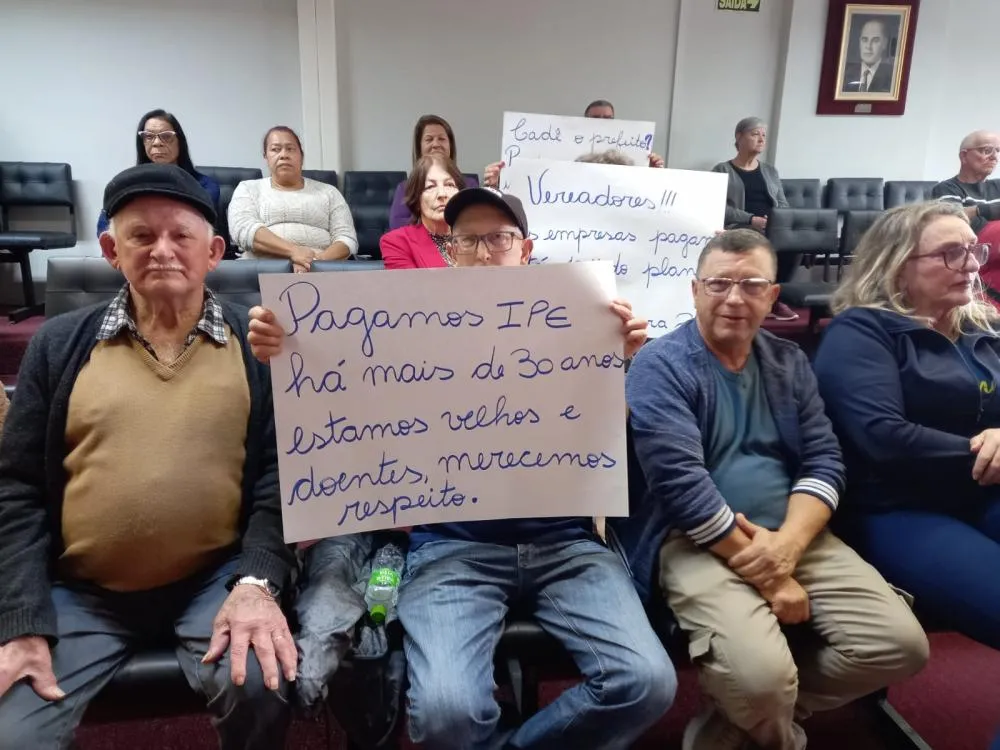 SAÍDA
Cadê o prefeito?
Vereadores!!!
empresas pagam
do plan
Pagamos IPE
há mais de 30 anos
estamos velhos e
doentes, merecemos
respeito.